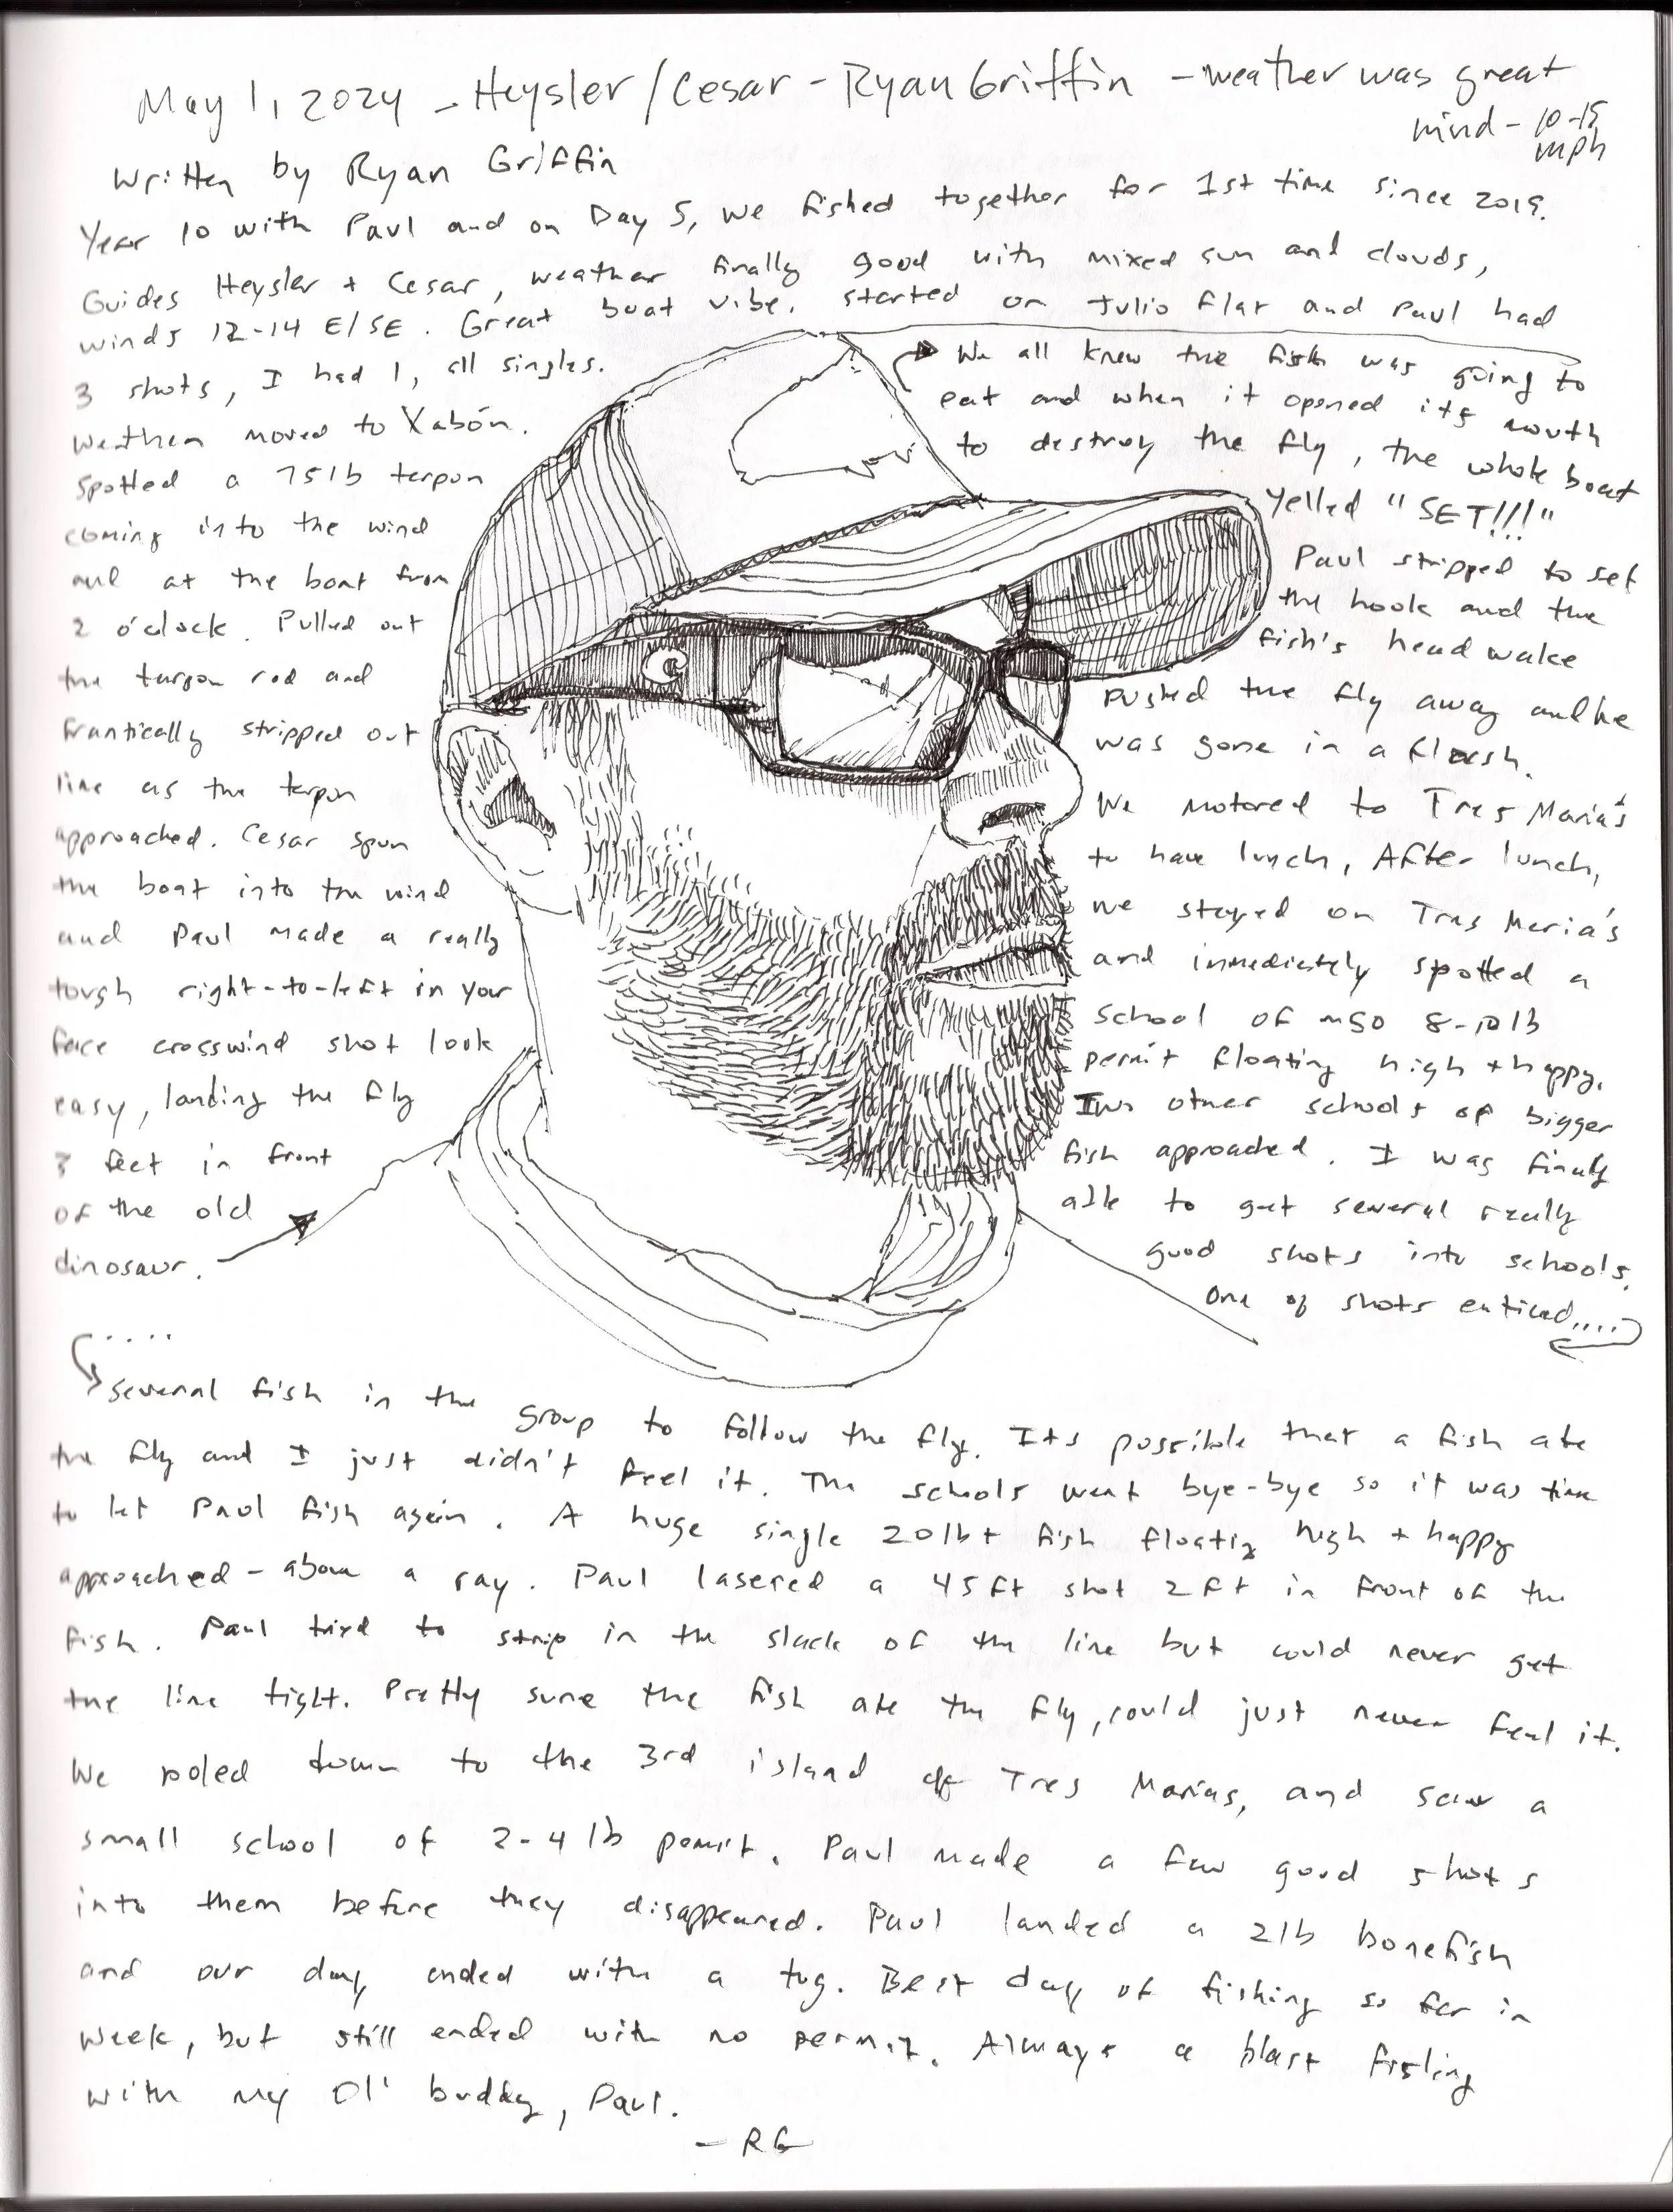 May 1, 2024 - Heysler/Cesar - Ryan Griffin - weather was great
wind - 10-15
mph
Written by Ryan Griffin
Year 10 with Paul and on Day 5, we fished together for 1st time since 2019.
Guides Heysler + Cesar, weather finally good with mixed sun and clouds,
winds 12-14 E/SE. Great boat vibe. Started on Julio Flat and Paul had
3 shots, I had 1, all singles.
We then moved to Xabón.
Spotted a 75lb tarpon
coming into the wind
and at the boat from
2 o'clock. Pulled out
the tarpon rod and
frantically stripped out
line as the tarpon
approached. Cesar spun
the boat into the wind
and Paul made a really
tough right-to-left in your
face crosswind shot look
easy, landing the fly
3 feet in front
of the old
dinosaur.
We all knew the fish was going to
eat and when it opened its mouth
to destroy the fly, the whole boat
yelled "SET!!!"
Paul stripped to set
the hook and the
fish's head wake
pushed the fly away and he
was gone in a flash.
We motored to Tres Maria's
to have lunch, After lunch,
we stayed on Tres Maria's
and immediately spotted a
school of ~50 8-10lb
permit floating high + happy.
Two other schools of bigger
fish approached. I was finally
able to get several really
good shots into schools.
One of shots enticed....
....
several fish in the group to follow the fly. Its possible that a fish ate
the fly and I just didn't feel it. The schools went bye-bye so it was time
to let Paul fish again. A huge single 20lb+ fish floating high + happy
approached - above a ray. Paul lasered a 45ft shot 2ft in front of the
fish. Paul tried to strip in the slack of the line but could never get
the line tight. Pretty sure the fish ate the fly, could just never feel it.
We poled down to the 3rd island of Tres Marias, and saw a
small school of 2-4 lb permit. Paul made a few good shots
into them before they disappeared. Paul landed a 2lb bonefish
and our day ended with a tug. Best day of fishing so far in
week, but still ended with no permit. Always a blast fishing
with my Ol' buddy, Paul.
- RG